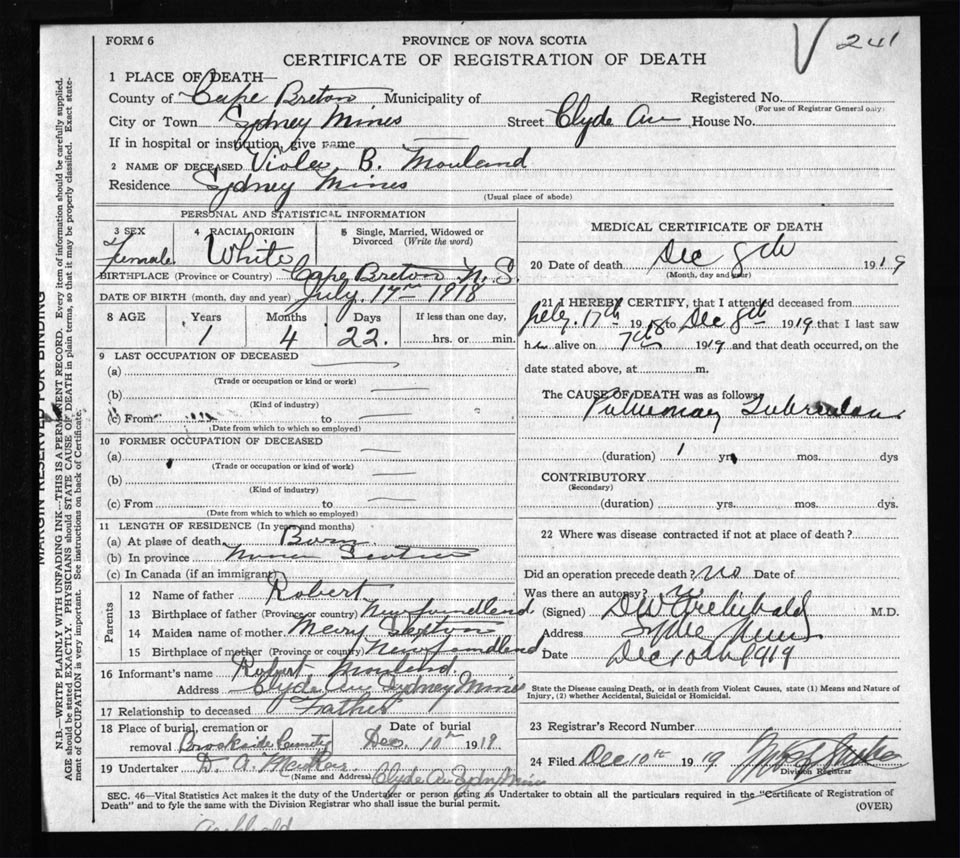 FORM 6
PROVINCE OF NOVA SCOTIA
CERTIFICATE OF REGISTRATION OF DEATH
V 241
1 PLACE OF DEATH—
County of Cape Breton Municipality of Registered No.
(For use of Registrar General only)
City or Town Sydney Mines Street Clyde Av House No.
If in hospital or institution, give name —
2 NAME OF DECEASED Viola B. Mouland
Residence Sydney Mines
(Usual place of abode)
PERSONAL AND STATISTICAL INFORMATION
3 SEX
Female
4 RACIAL ORIGIN
White
5 Single, Married, Widowed or
Divorced (Write the word)
BIRTHPLACE (Province or Country) Cape Breton N. S.
DATE OF BIRTH (month, day and year) July 17th 1918
8 AGE Years Months Days If less than one day,
1 4 22. hrs. or min.
9 LAST OCCUPATION OF DECEASED
(a)
(Trade or occupation or kind or work)
(b) —
(Kind of industry)
(c) From to —
(Date from which to which so employed)
10 FORMER OCCUPATION OF DECEASED
(a) —
(Trade or occupation or kind of work)
(b) —
(Kind of industry)
(c) From to —
(Date from which to which so employed)
11 LENGTH OF RESIDENCE (In years and months)
(a) At place of death Born
(b) In province Nova Scotia
(c) In Canada (if an immigrant)
Parents
12 Name of father Robert
13 Birthplace of father (Province or country) Newfoundland
14 Maiden name of mother Mary
15 Birthplace of mother (Province or country) Newfoundland
16 Informant's name Robert Mouland
Address Clyde Av Sydney Mines
17 Relationship to deceased Father
18 Place of burial, cremation or
removal Brookside
Date of burial
Dec. 10th 1919
19 Undertaker D. A.
(Name and Address) Clyde Av Sydn Mines
MEDICAL CERTIFICATE OF DEATH
20 Date of death Dec 8th 1919
(Month, day and year)
21 I HEREBY CERTIFY, that I attended deceased from
July 17th 1918 to Dec 8th 1919 that I last saw
her alive on 7th 1919 and that death occurred, on the
date stated above, at m.
The CAUSE OF DEATH was as follows
Pulmonary Tuberculosis
(duration) 1 yrs mos. dys
CONTRIBUTORY
(Secondary)
(duration) yrs. mos. dys.
22 Where was disease contracted if not at place of death?
Did an operation precede death? no Date of
Was there an autopsy? no
(Signed) DW Archibald M.D.
Address Sydney Mines
Date Dec 10th 1919
State the Disease causing Death, or in death from Violent Causes, state (1) Means and Nature of
Injury, (2) whether Accidental, Suicidal or Homicidal.
23 Registrar's Record Number
24 Filed Dec 10th 1919
Division Registrar
SEC. 46—Vital Statistics Act makes it the duty of the Undertaker or person acting as Undertaker to obtain all the particulars required in the "Certificate of Registration of
Death" and to fyle the same with the Division Registrar who shall issue the burial permit.
(OVER)
Archibald
MARGIN RESERVED FOR BINDING
N.B.—WRITE PLAINLY WITH UNFADING INK—THIS IS A PERMANENT RECORD. Every item of information should be carefully supplied.
AGE should be stated EXACTLY. PHYSICIANS should STATE CAUSE OF DEATH in plain terms, so that it may be properly classified. Exact state-
ment of OCCUPATION is very important. See instructions on back of Certificate.